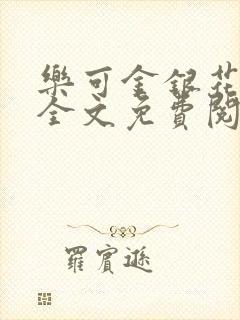 樂可金銀花
全文免費閱
羅賓遜